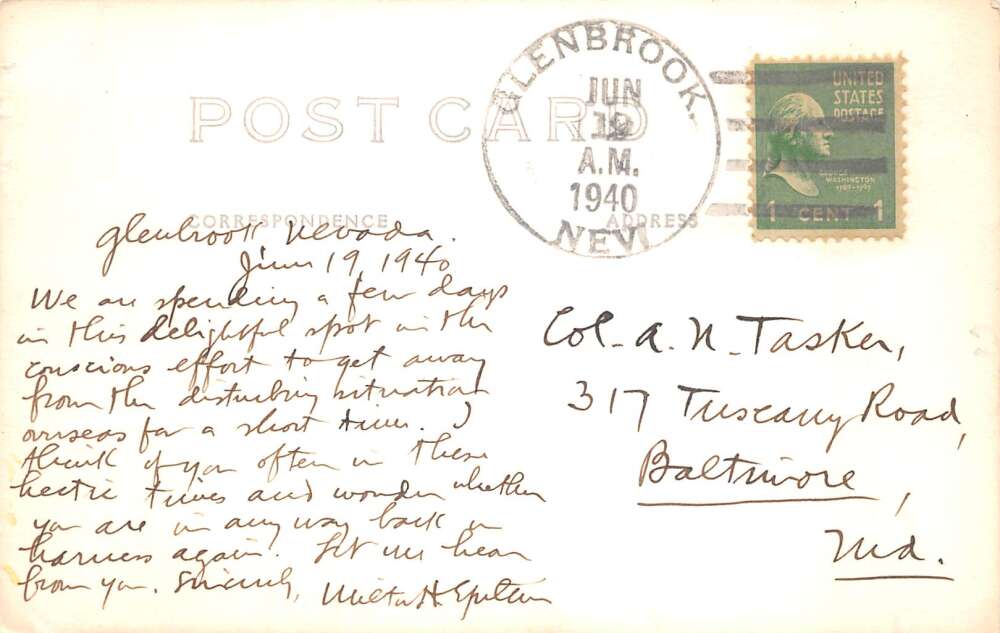 POST CARD
CORRESPONDENCE
ADDRESS
GLENBROOK,
JUN
19
A.M.
1940
NEV.
UNITED
STATES
POSTAGE
GEORGE
WASHINGTON
1 CENT 1
Glenbrook, Nevada.
June 19, 1940
We are spending a few days
in this delightful spot in the
conscious effort to get away
from the disturbing situation
overseas for a short time. I
think of you often in these
hectic times and wonder whether
you are in any way back in
harness again. Let me hear
from you. Sincerely, Milton H. Epstein
Col. A. N. Tasker,
317 Tuscany Road,
Baltimore,
Md.